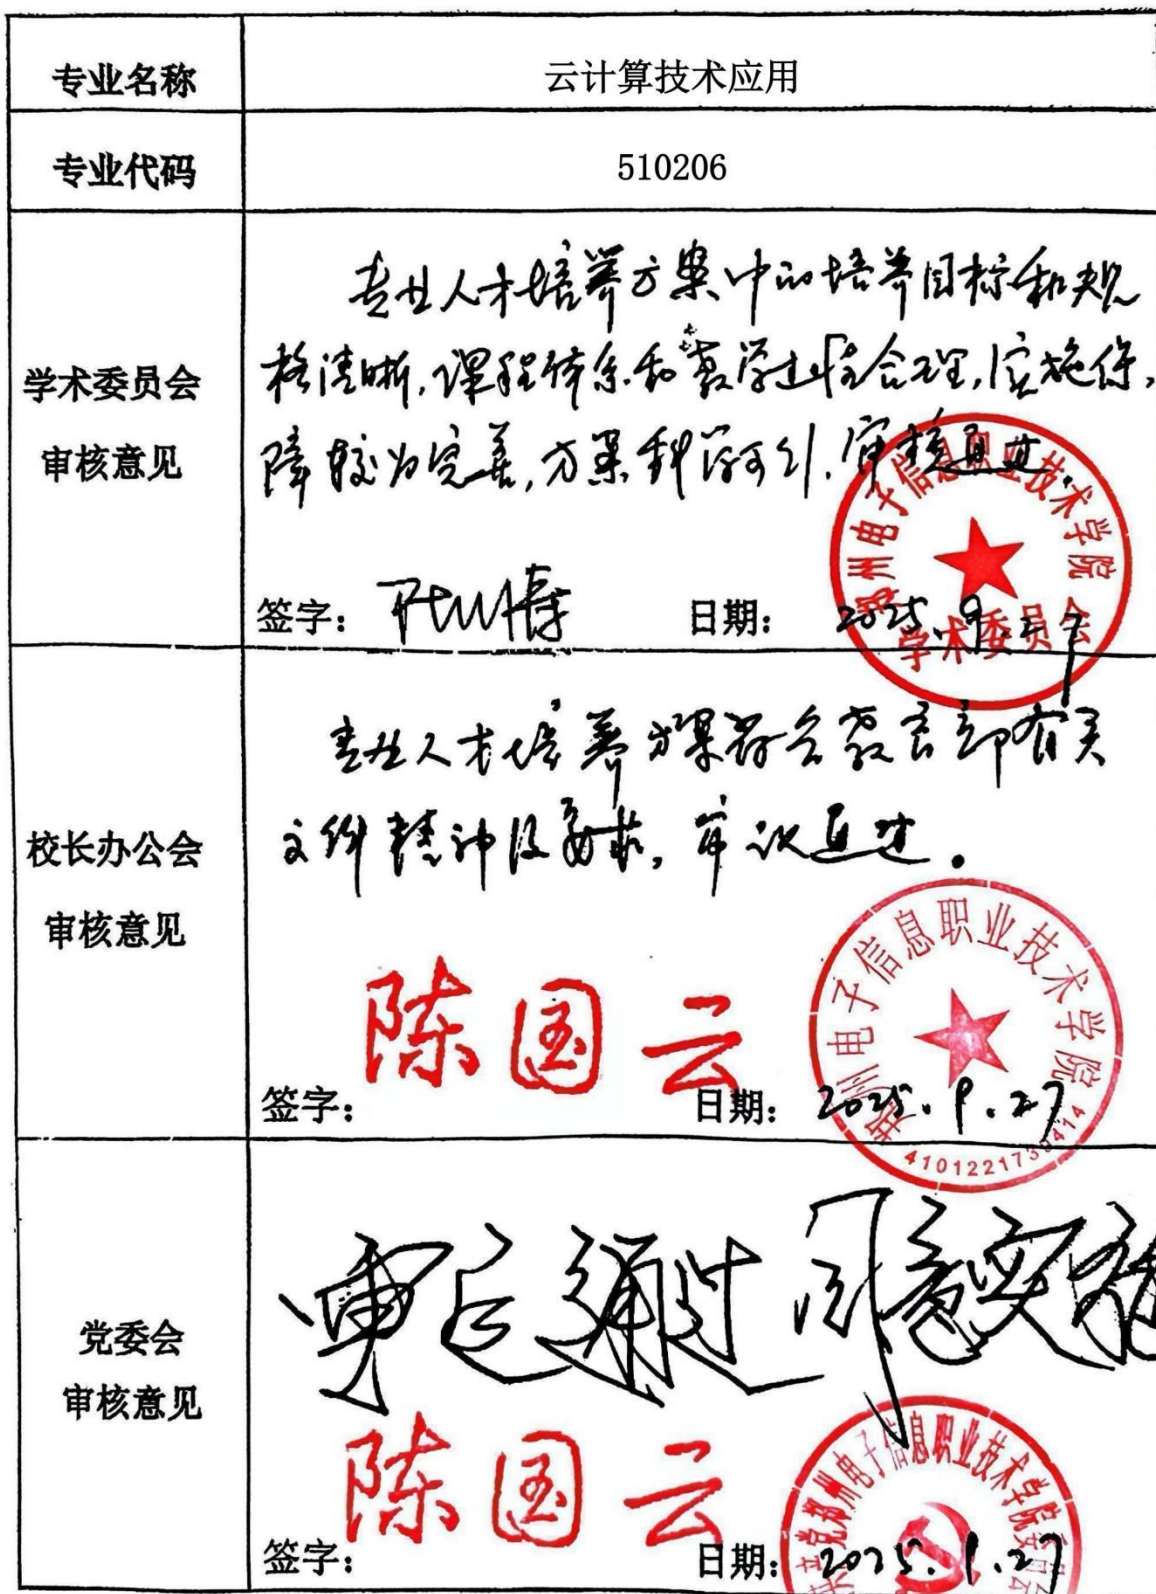 专业名称 云计算技术应用
专业代码 510206
学术委员会
审核意见
专业人才培养方案中的培养目标和规
格清晰,课程体系和教学进程合理,实施保
障较为完善,方案科学可行,审核通过。
签字: 日期: 2025.9.27
郑州电子信息职业技术学院
学术委员会
校长办公会
审核意见
专业人才培养方案符合教育部有关
文件精神及要求,审议通过。
签字: 陈国云 日期: 2025.9.27
郑州电子信息职业技术学院
党委会
审核意见
审定通过 同意实施
签字: 陈国云 日期: 2025.9.27
郑州电子信息职业技术学院委员会